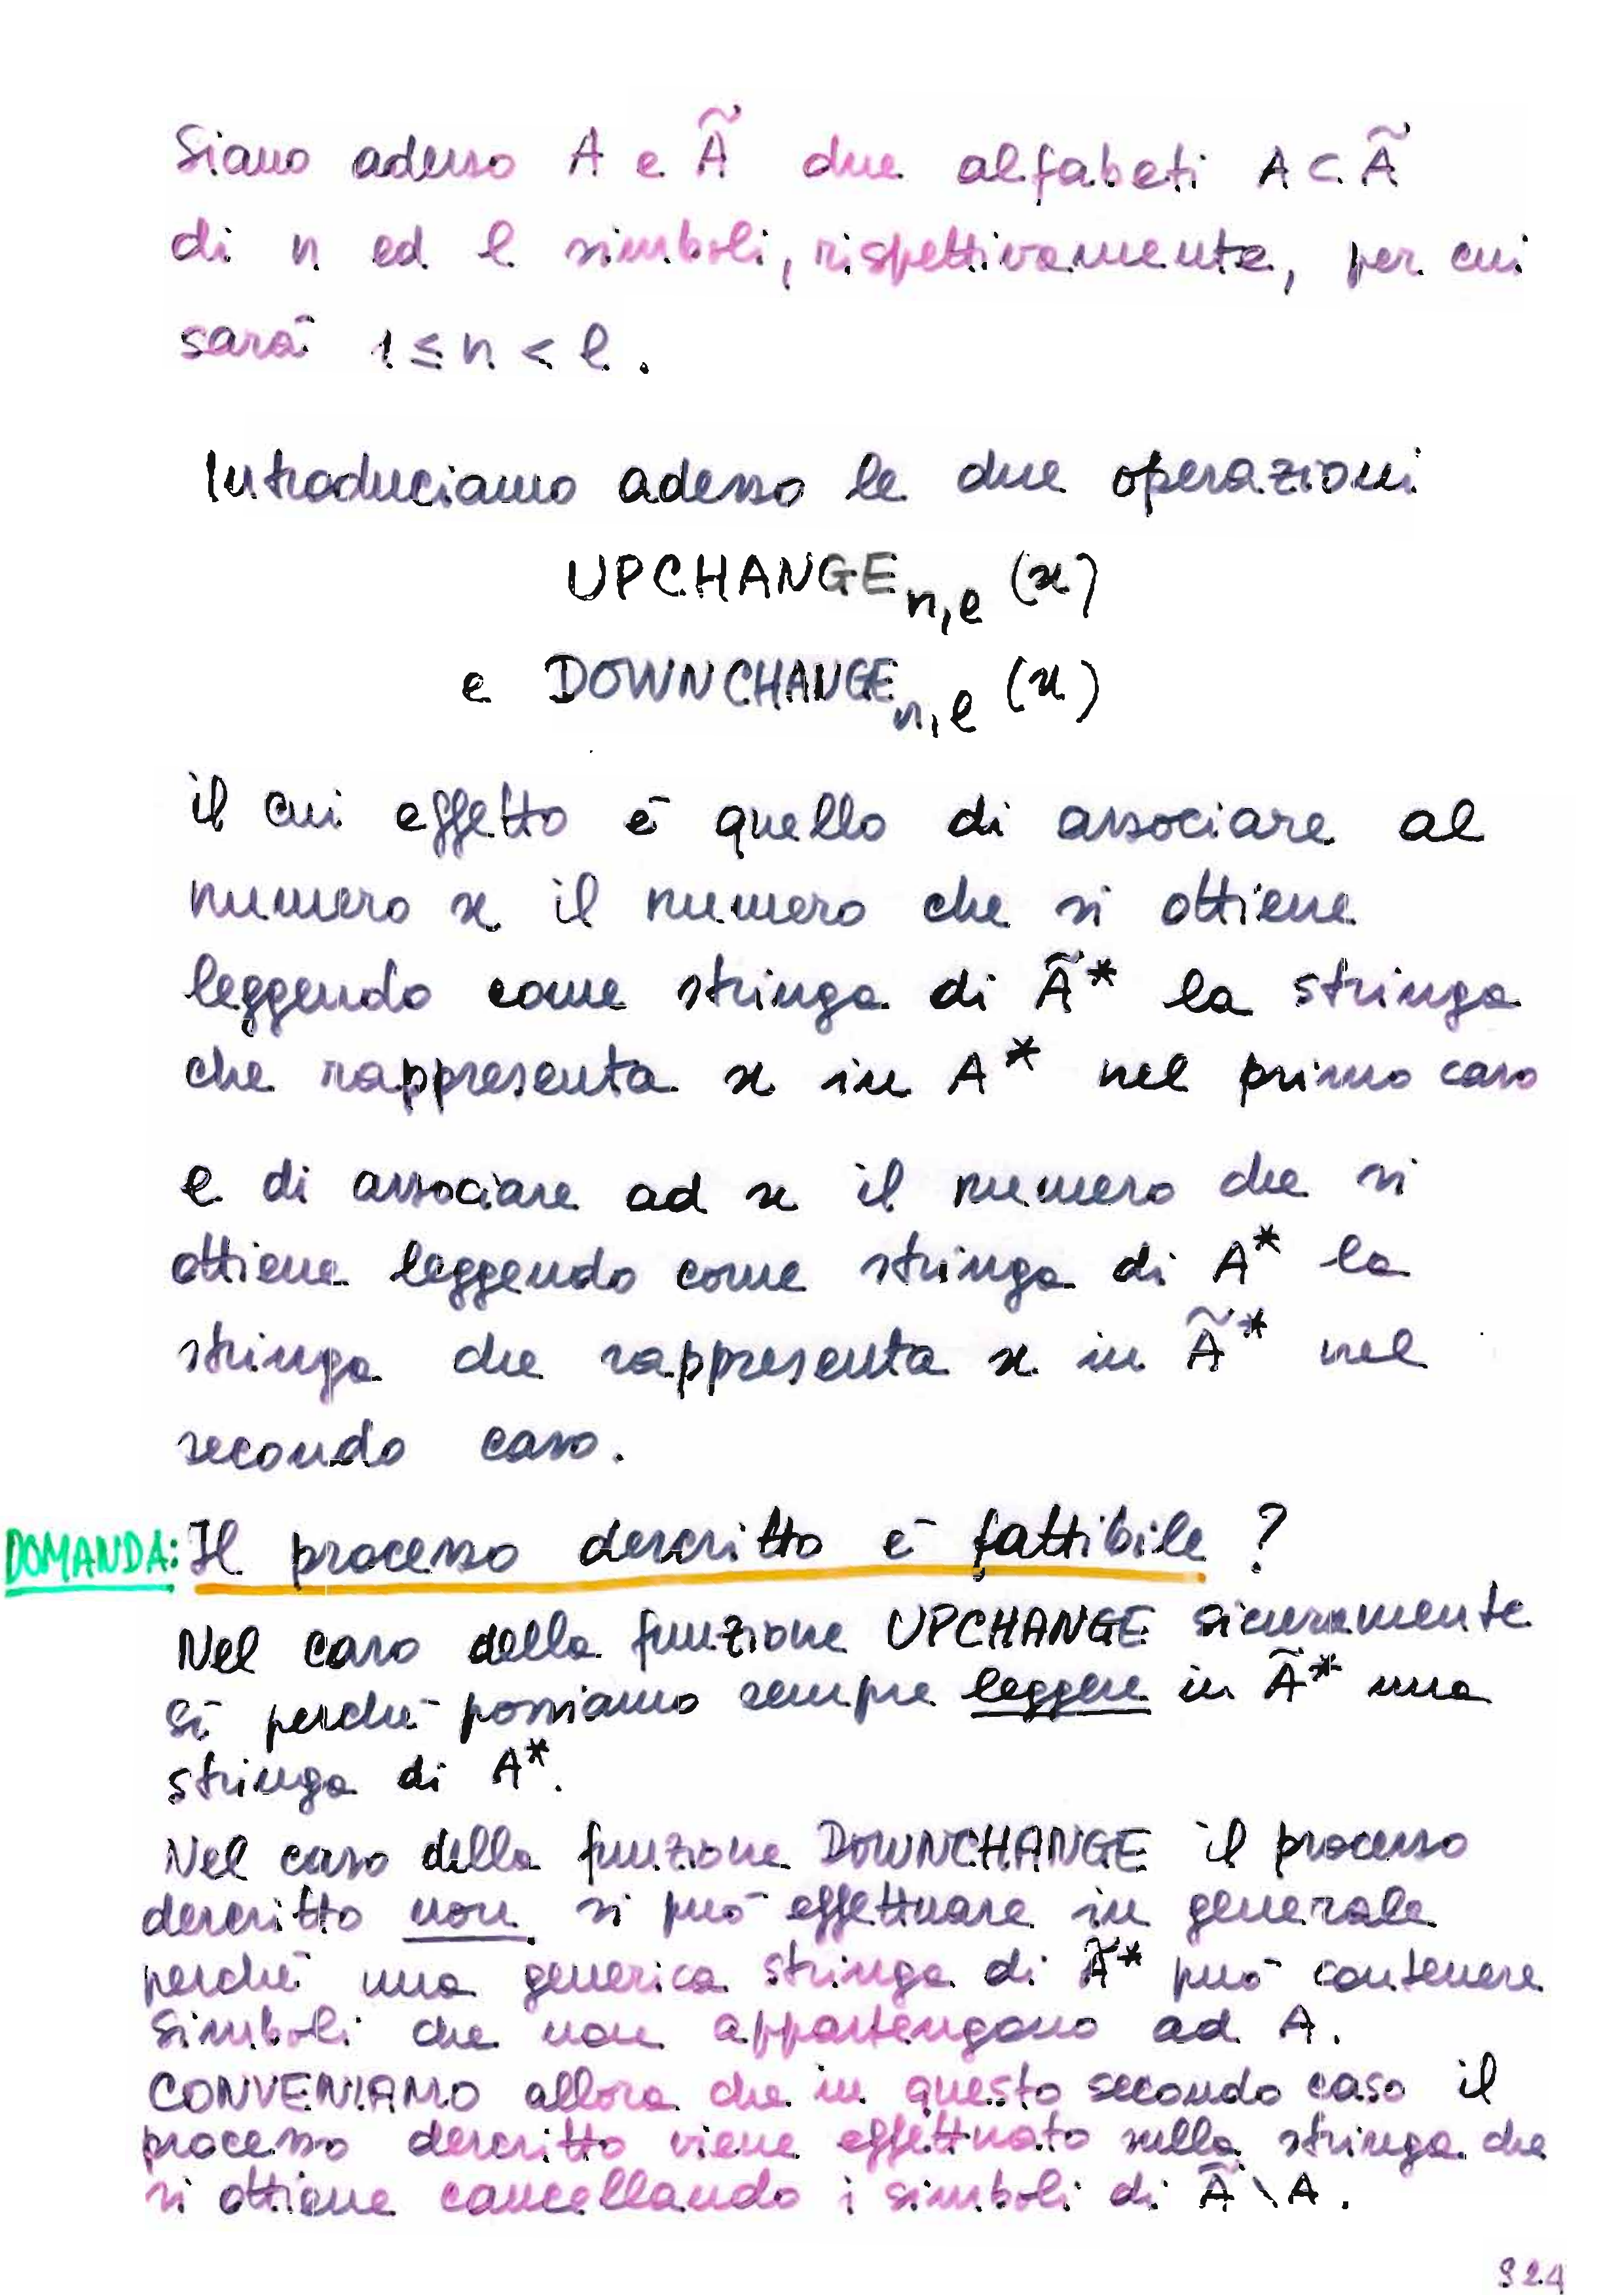 Siano adesso A e Ã due alfabeti A ⊂ Ã
di n ed l simboli, rispettivamente, per cui
sarà 1 ≤ n < l.
Introduciamo adesso le due operazioni
UPCHANGE n,l (x)
e DOWNCHANGE n,l (x)
il cui effetto è quello di associare al
numero x il numero che si ottiene
leggendo come stringa di Ã* la stringa
che rappresenta x in A* nel primo caso
e di associare ad x il numero che si
ottiene leggendo come stringa di A* la
stringa che rappresenta x in Ã* nel
secondo caso.
DOMANDA: Il processo descritto è fattibile ?
Nel caso della funzione UPCHANGE sicuramente
sì perché possiamo sempre leggere in Ã* una
stringa di A*.
Nel caso della funzione DOWNCHANGE il processo
descritto non si può effettuare in generale
perché una generica stringa di Ã* può contenere
simboli che non appartengono ad A.
CONVENIAMO allora che in questo secondo caso il
processo descritto viene effettuato sulla stringa che
si ottiene cancellando i simboli di Ã \ A.
921